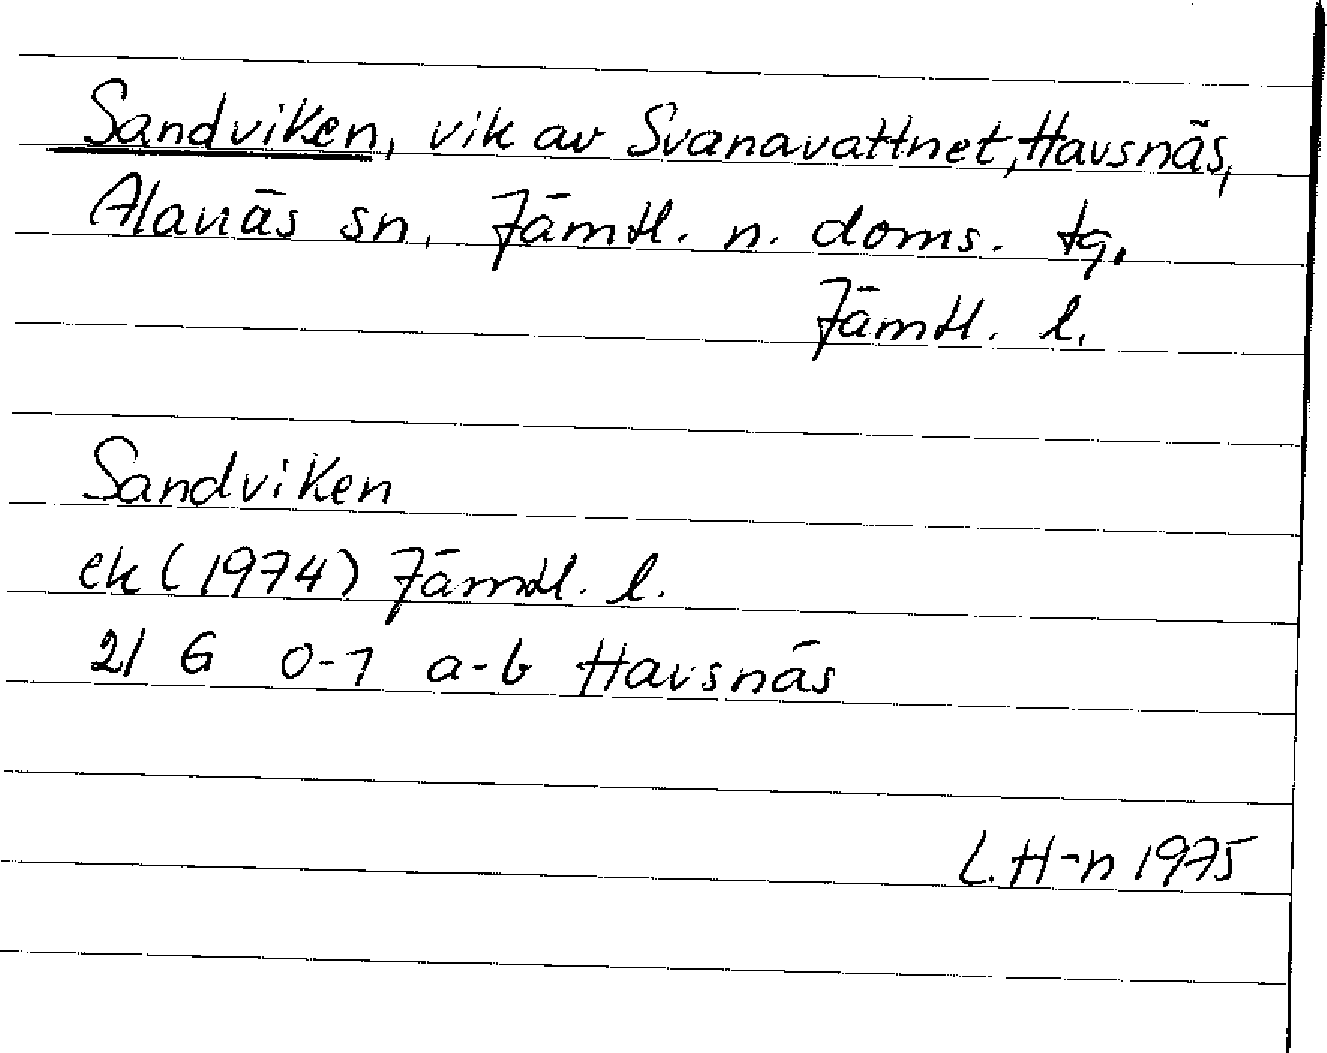 Sandviken, vik av Svanavattnet, Havsnäs,
Alanäs sn, Jämtl. n. doms. tg,
Jämtl. l.
Sandviken
ek (1974) Jämtl. l.
21 G 0-1 a-b Havsnäs
L. H-n 1975